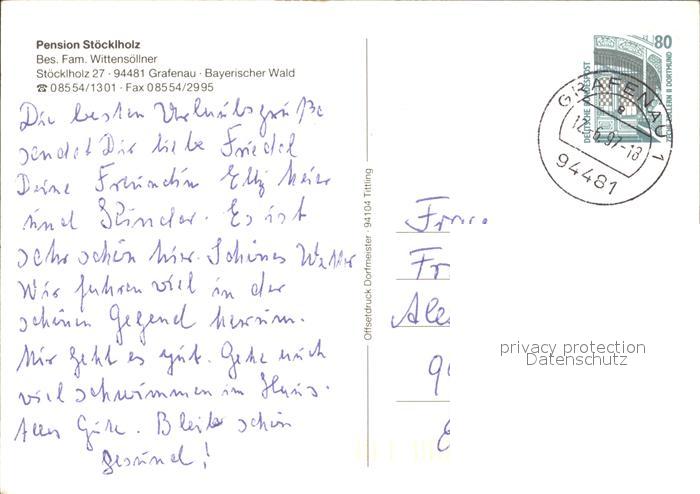 Pension Stöcklholz
Bes. Fam. Wittensöllner
Stöcklholz 27 · 94481 Grafenau · Bayerischer Wald
☎ 08554/1301 · Fax 08554/2995
Die besten Urlaubsgrüße
sendet Dir liebe Friedel
Deine Freundin Elly
und Kinder. Es ist
sehr schön hier. Schönes Wetter
Wir fuhren viel in der
schönen Gegend herum.
Mir geht es gut. Gehe auch
viel schwimmen im Haus.
Alles Gute. Bleib schön
gesund!
Offsetdruck Dorfmeister · 94104 Tittling
80
DEUTSCHE BUNDESPOST
ZECHE ZOLLERN II DORTMUND
GRAFENAU 1
e
12.6.97-18
94481
Frau
Fr
Ale
9
privacy protection
Datenschutz